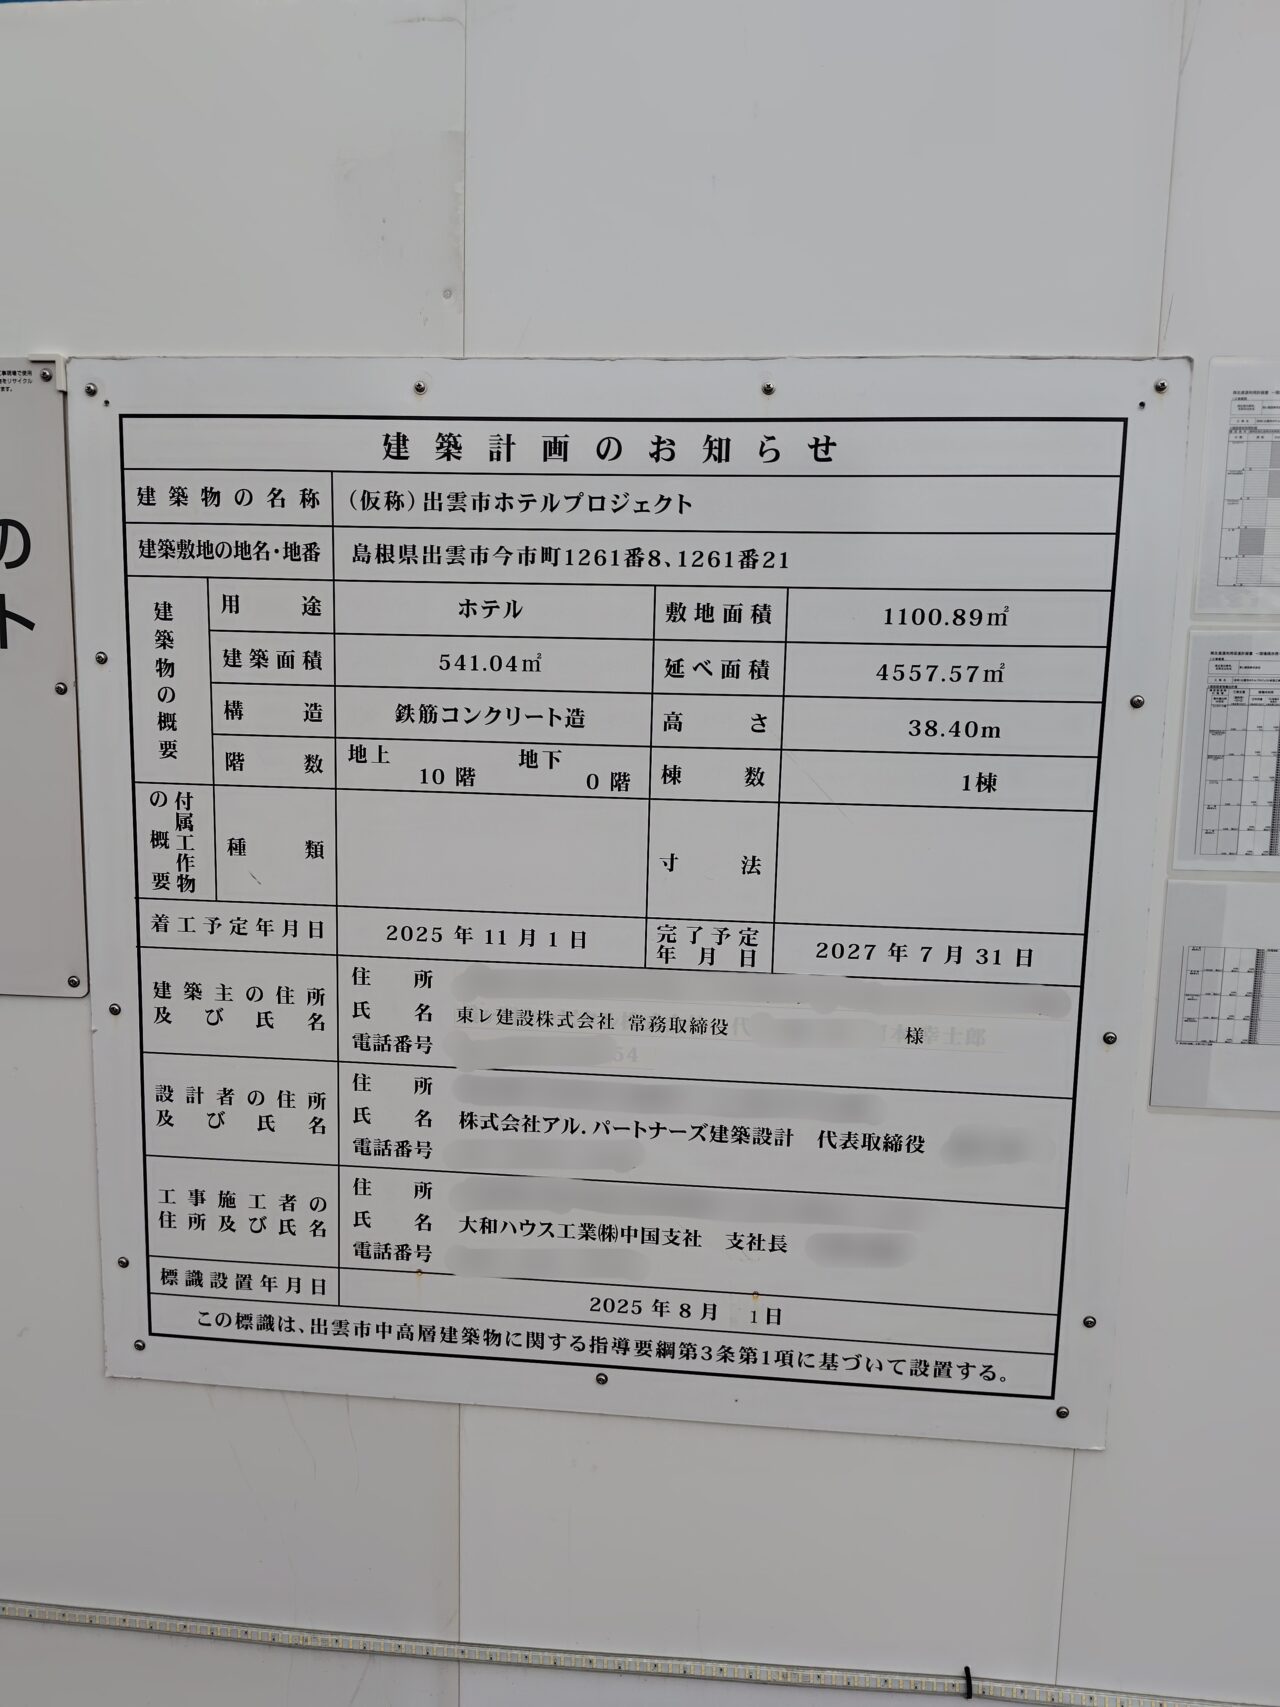 建築計画のお知らせ
建築物の名称 (仮称)出雲市ホテルプロジェクト
建築敷地の地名・地番 島根県出雲市今市町1261番8、1261番21
建築物の概要
用途 ホテル 敷地面積 1100.89㎡
建築面積 541.04㎡ 延べ面積 4557.57㎡
構造 鉄筋コンクリート造 高さ 38.40m
階数 地上 10階 地下 0階 棟数 1棟
付属工作物の概要 種類 寸法
着工予定年月日 2025年11月1日 完了予定年月日 2027年7月31日
建築主の住所及び氏名
住所
氏名 東レ建設株式会社 常務取締役 様
電話番号
設計者の住所及び氏名
住所
氏名 株式会社アル.パートナーズ建築設計 代表取締役
電話番号
工事施工者の住所及び氏名
住所
氏名 大和ハウス工業㈱中国支社 支社長
電話番号
標識設置年月日 2025年8月 1日
この標識は、出雲市中高層建築物に関する指導要綱第3条第1項に基づいて設置する。